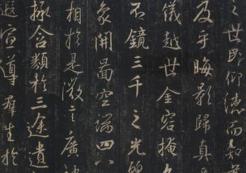 之世民仰德而知
及乎晦影歸真
儀越世金容掩
不鏡三千之光
象開圖空端四八
相於是微言廣
拯含類於三途遺
遐宣導群生於